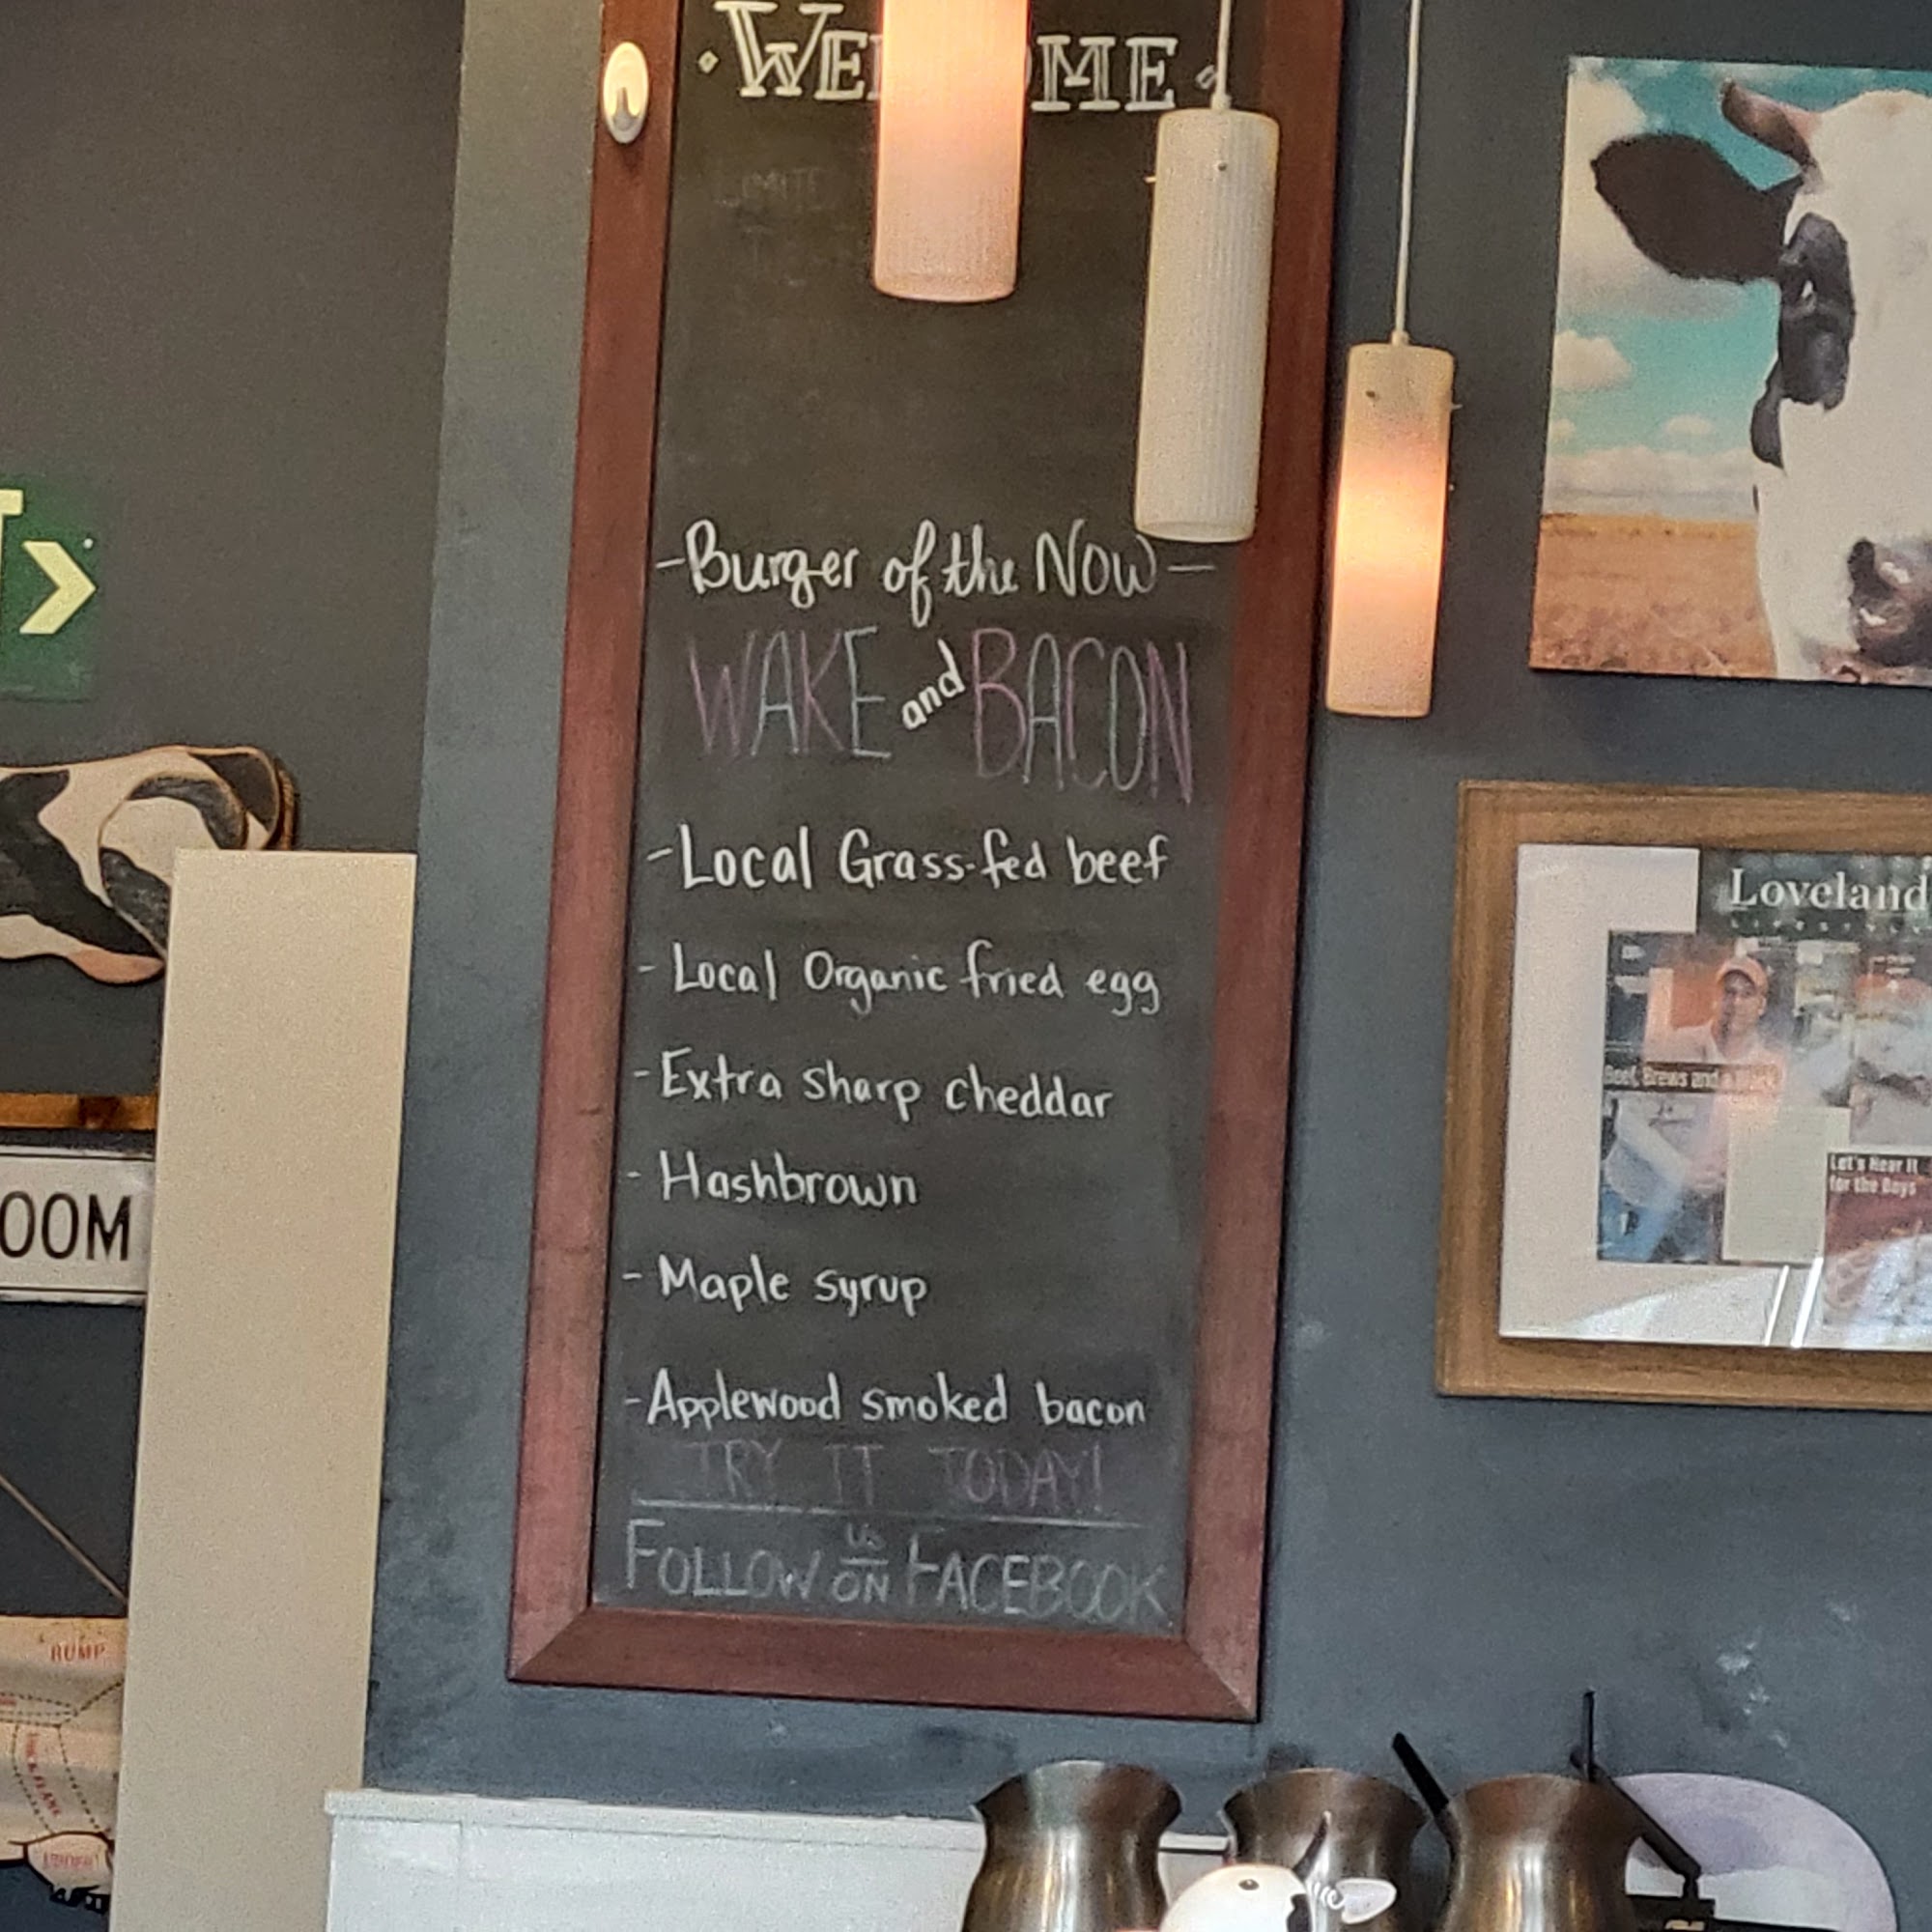 WELCOME
- Burger of the Now -
WAKE and BACON
- Local Grass-fed beef
- Local Organic fried egg
- Extra sharp cheddar
- Hashbrown
- Maple syrup
- Applewood smoked bacon
TRY IT TODAY!
FOLLOW US ON FACEBOOK
T
OOM
RUMP
Loveland
LIFESTYLE
Beef, Brews and a
Let's Hear It
for the Boys